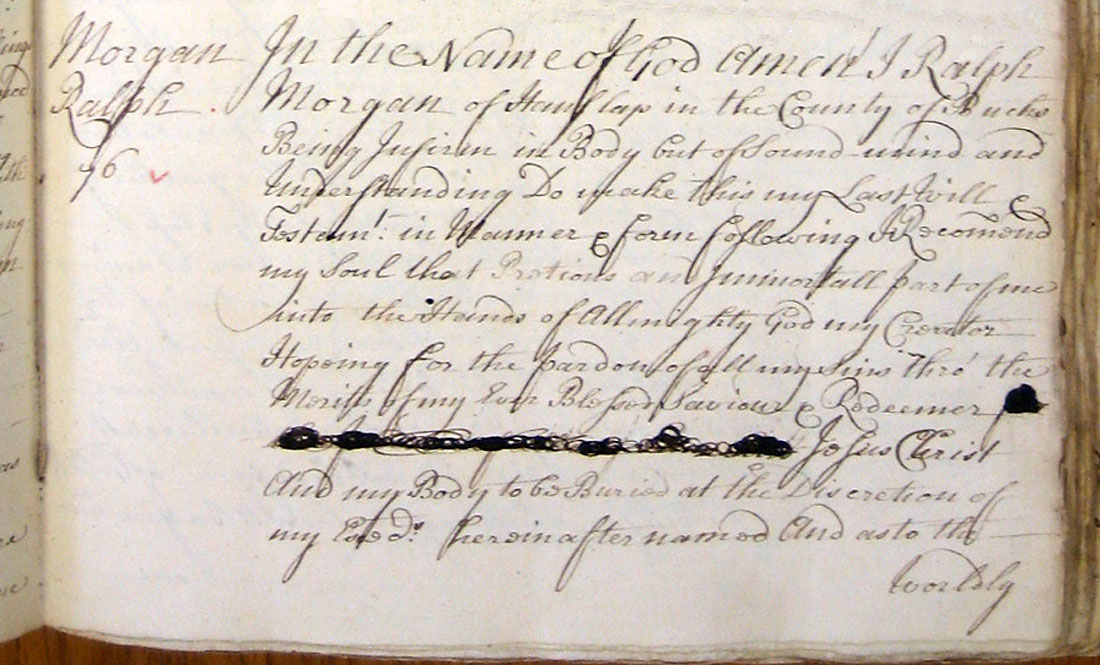 Morgan
Ralph
76
In the Name of God Amen I Ralph
Morgan of Hanslap in the County of Bucks
Being Infirm in Body but of Sound mind and
Understanding Do make this my Last Will &
Testamt. in Manner & form following I Recomend
my Soul that Pretious and Immortall part of me
into the Hands of Allmighty God my Creator
Hopeing for the pardon of all my Sins thro' the
Merits of my Ever Blessed Saviour & Redeemer
Jesus Christ
And my Body to be Buried at the Discretion of
my hereinafter named And as to the
Worldly